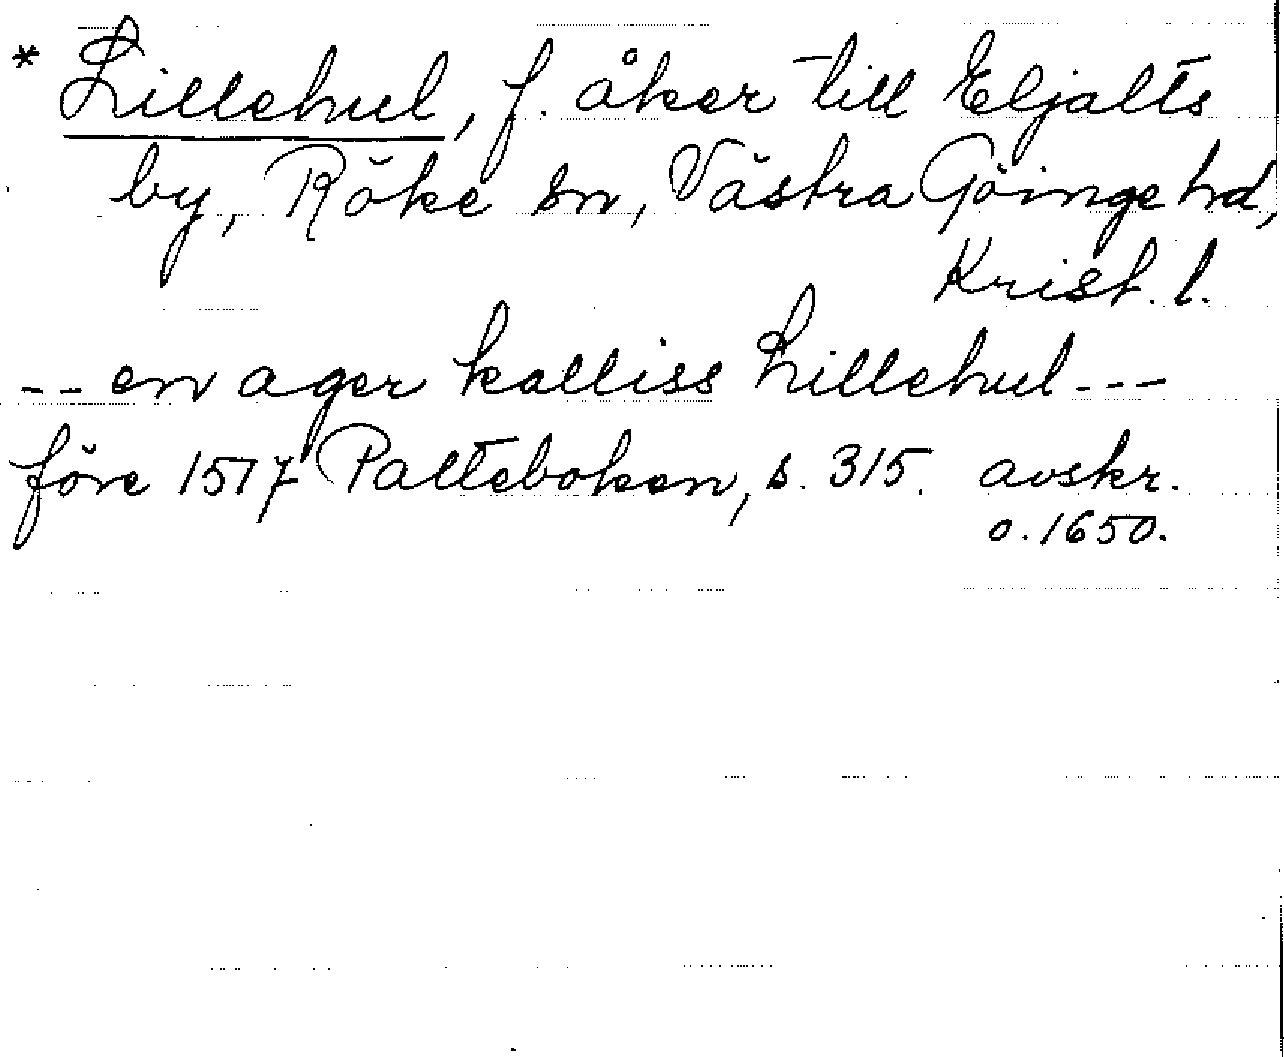 * Lillehul, f. åker till Eljalts
by, Röke sn, Västra Göinge hd,
Krist. l.
-- en ager kalliss Lillehul ---
före 1517 Palteboken, s. 315. avskr.
o. 1650.